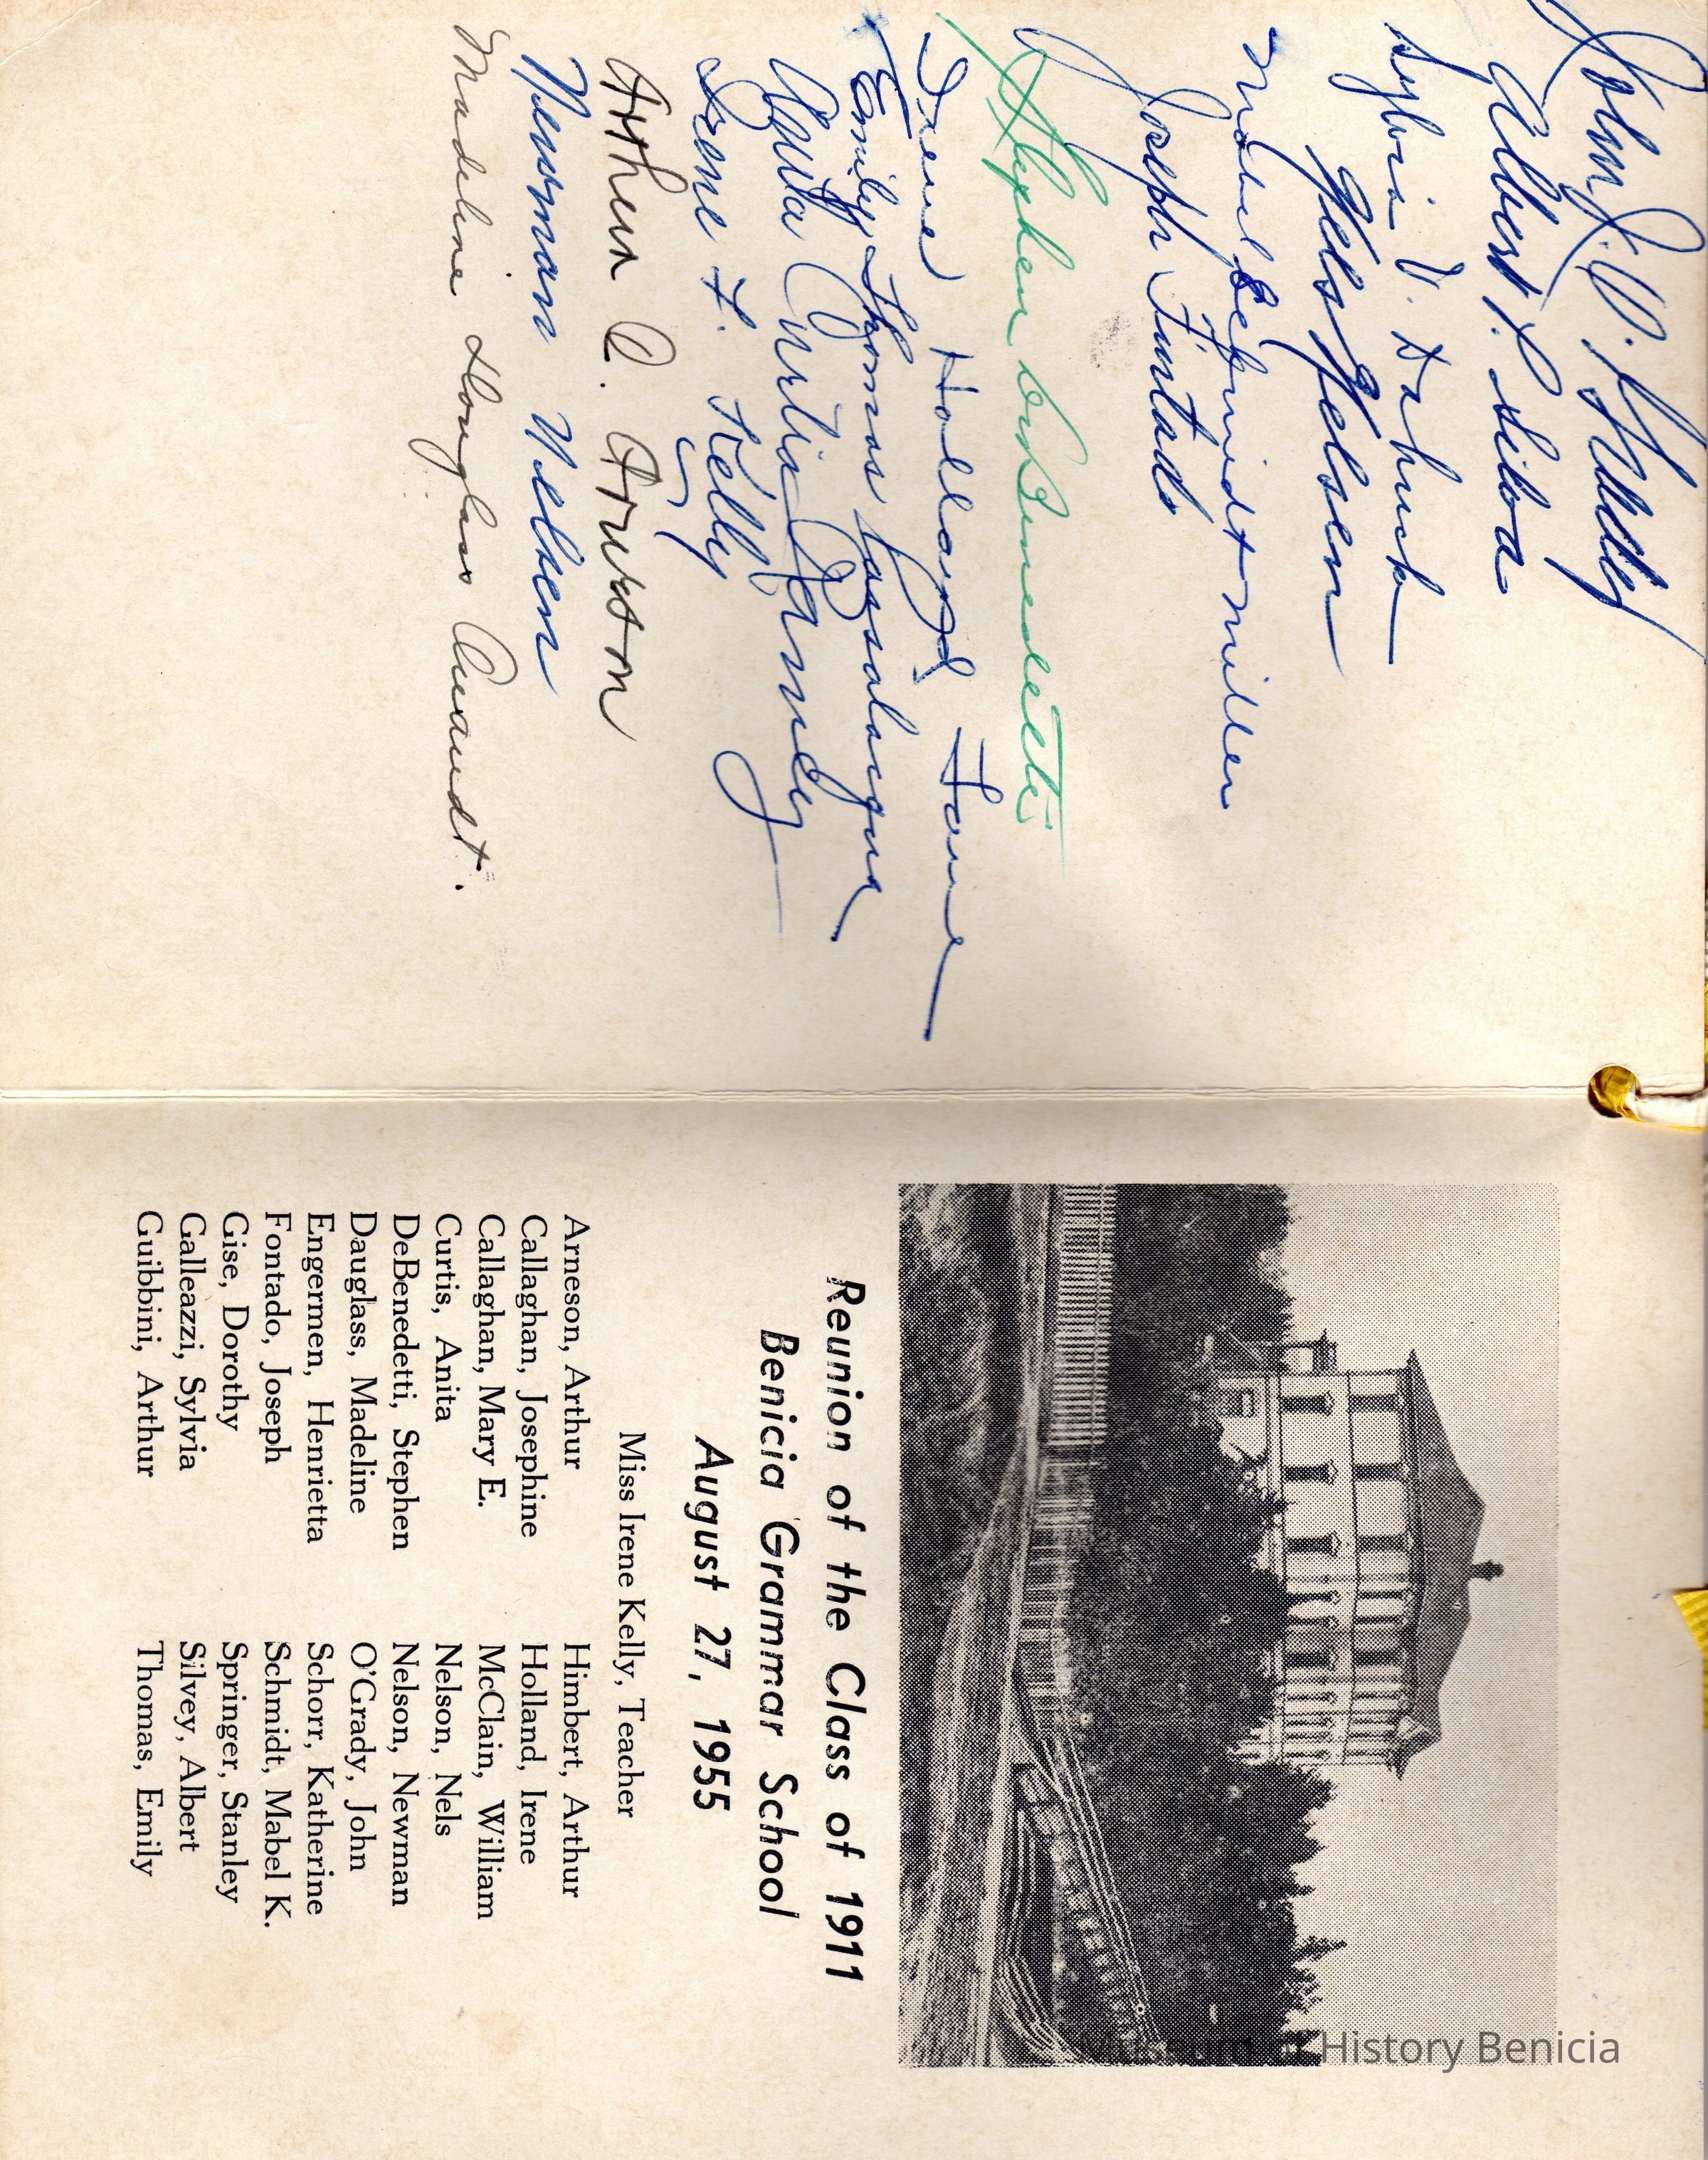 John J. O'Grady
Albert P. Silva
Sylvia D. Dahuck
Nels Nelsen
Mabel Schmidt Miller
Joseph Funtado
Stephen DeBenedetti
Irene Holland Fone
Emily Thomas Passalacqua
Anita Curtis
Irene F. Kelly
Arthur O. Arneson
Newman Nelsen
Madeline Douglass Quandt.
Reunion of the Class of 1911
Benicia Grammar School
August 27, 1955
Miss Irene Kelly, Teacher
Arneson, Arthur
Callaghan, Josephine
Callaghan, Mary E.
Curtis, Anita
DeBenedetti, Stephen
Dauglass, Madeline
Engermen, Henrietta
Fontado, Joseph
Gise, Dorothy
Galleazzi, Sylvia
Guibbini, Arthur
Himbert, Arthur
Holland, Irene
McClain, William
Nelson, Nels
Nelson, Newman
O'Grady, John
Schorr, Katherine
Schmidt, Mabel K.
Springer, Stanley
Silvey, Albert
Thomas, Emily
Museum of History Benicia